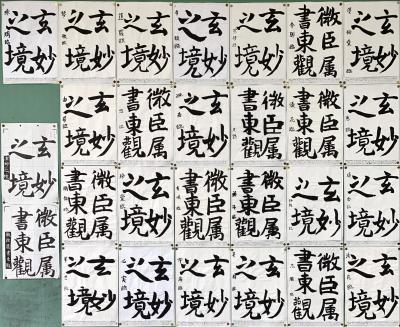 玄妙
之境
玄妙
之境
玄妙
之境
玄妙
之境
玄妙
之境
微臣属
書東觀
玄妙
之境
玄妙
之境
微臣属
書東觀
玄妙
之境
微臣属
書東觀
微臣属
書東觀
玄妙
之境
玄妙
之境
微臣属
書東觀
微臣属
書東觀
玄妙
之境
微臣属
書東觀
微臣属
書東觀
玄妙
之境
玄妙
之境
玄妙
之境
玄妙
之境
玄妙
之境
玄妙
之境
微臣属
書東觀
玄妙
之境